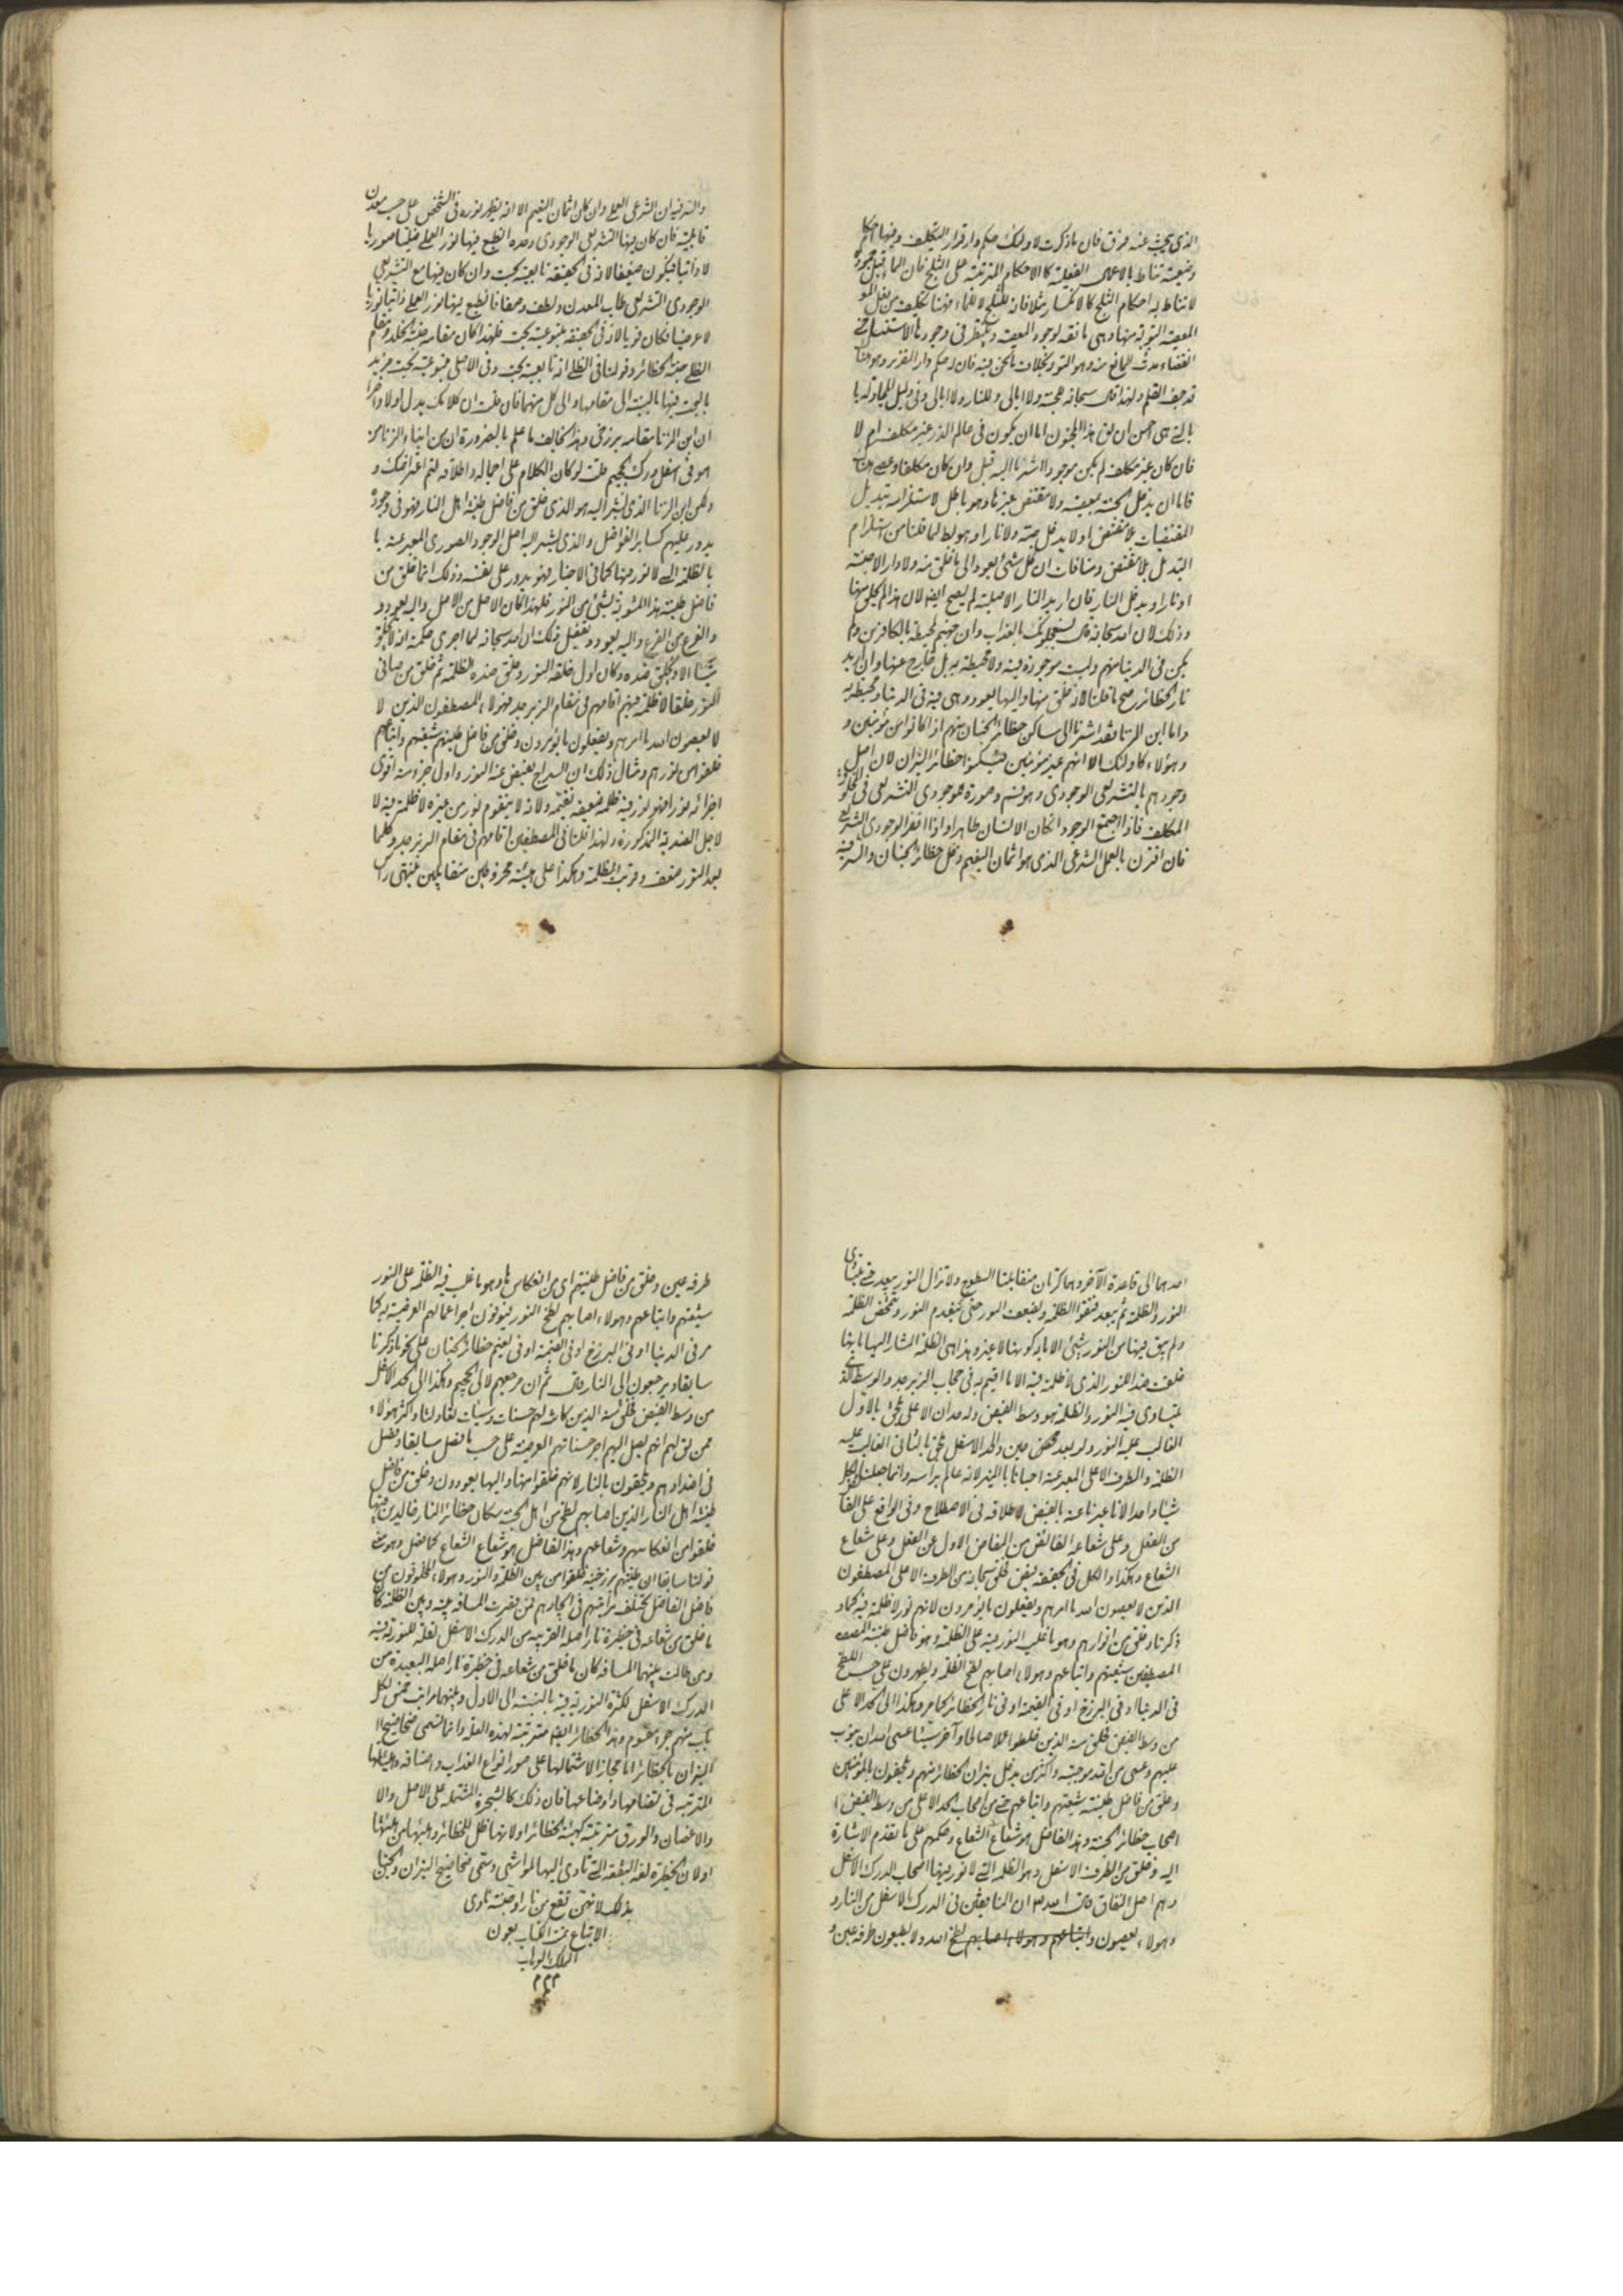 الذي يبحث عنه فرق فان ما ذكرت لاولئك حكم دار قرار التكليف وفيها احكام
وضعية تناط بالاعمال الفعلية كالاحكام المترتبة على الثلج فان الماء قبل جموده
لا تناط به احكام الثلج كالانكسار مثلا فانه للثلج لا للماء فهنا تكليف
القضاء المانع منه وهو التو بخلاف ما نحن فيه فان حكم دار القرار وهو هناك
قد جف القلم ولهذا قال سبحانه للجنة ولا ابالي وللنار ولا ابالي وفي دليل المجادلة
بالتي هي احسن ان لق هذا المجنون اما ان يكون في عالم الذر غير مكلف ام لا
فان كان غير مكلف لم يكن موجودا اشرنا اليه قبل وان كان مكلفا وعصى هناك
فاما ان يدخل الجنة بمعصيته ولا مقتضى غيرها وهو باطل لاستلزامه تبديل
المقتضيات بلا مقتض او لا يدخل جنة ولا نارا وهو بط لما قلنا من استلزام
التبديل بلا مقتض ومنافات ان كل شئ يعود الى ما خلق منه ولا دار الا جنة
او نار او يدخل النار فان اريد النار الاصلية لم يصح ايضا لان هذا لم يخلق منها
وذلك لان الله سبحانه قال يستعجلونك بالعذاب وان جهنم لمحيطة بالكافرين ولم
يكن في الدنيا منهم وليست موجودة فيه ولا محيطة به بل خارج عنها وان اريد
نار الحظائر صح ما قلنا لانه خلق منها واليها يعود وهي فيه في الدنيا ومحيطة به
واما ابن الزنا فقد اشرنا الى ساكن حظائر الجنان منهم اذا كانوا مؤمنين و
وهؤلاء كاولئك الا انهم غير مؤمنين فيسكنوا حظائر النيران لان اصل
وجودهم بالتشريعي الوجودي وهو نسم وصورة هو وجودي التشريعي في الخلوة
المكلف فاذا اجتمع الوجودان كان الانسان طاهرا واذا افقر الوجودي التشريعي
فان اقترن بالعمل الشرعي الذي هو اثمان النعيم دخل حظائر الجنان والسر فيه
والسر فيه ان الشرعي العملي وان كان اثمان النعيم الا انه يظهر نوره في الشخص على حسب معدن
قابليته فان كان فيها التشريعي الوجودي وحده انطبع فيها نور العملي
لا ذاتيا فيكون ضعيفا لانه في الحقيقة تابعية بحت وان كان فيها مع التشريعي
الوجودي التشريعي طاب المعدن ولطف وصفا فانطبع فيها نور العملي ذاتيا نوريا
لا عرضيا فكان قويا لانه في الحقيقة متبوعية بحت فلهذا كان مقامه جنة الخلد ومقام
الظلي جنة الحظائر وقولنا في الظلي انه تابعية بحت وفي الاصلي متبوعية بحت نريد
بالبحت فيها بالنسبة الى مقامها والى كل منهما فان قلت ان كلامك يدل اولا واخرا
ان ابن الزنا مقامه برزخي وهذا يخالف ما علم بالضرورة ان من ابناء الزنا من
هو في اسفل درك الجحيم قلت لو كان الكلام على اجماله واطلاقه لتم اعتراضك و
ولكن ابن الزنا الذي نشير اليه هو الذي خلق من فاضل طينة اهل النار فهو في وجوده
يدور عليهم كساير الفواضل والذي يشير اليه اصل الوجود الصوري المعبر عنه با
بالظلمة التي لا نور فيها كما في الاخبار فهو يدور على نفسه وذلك انما خلق من
فاضل طينة هذا المشوبة بشئ من النور فلهذا كان الاصل من الاصل واليه يعود و
والفرع من الفرع واليه يعود وتفصيل ذلك ان الله سبحانه لما اجرى حكمته انه لا يخلق
شيئا الا ويخلق ضده وكان اول خلقه النور وخلق ضده الظلمة ثم خلق من صافي
النور خلقا لا ظلمة فيهم اقامهم في مقام الزبرجد فهؤلاء المصطفون الذين لا
لا يعصون الله ما امرهم ويفعلون ما يؤمرون وخلق من فاضل طينتهم شيعتهم واتباعهم
خلقوا من نورهم ومثال ذلك ان السراج يفيض عنه النور واول جزء منه اقوى
اجزائه نورا فهو نور فيه ظلمة ضعيفة تقيمه ولانه لا يتقوم نور من غيره لا ظلمة فيه لا
لاجل الضدية المذكورة ولهذا قلنا في المصطفين اقامهم في مقام الزبرجد وكلما
بعد النور ضعف وقويت الظلمة وهكذا على هيئة مخروطين متقابلين ينتهي راس
احدهما الى قاعدة الآخر وهما كرتان متقابلتا السطوح ولا تزال النور يبعد حتى يتساوى
النور والظلمة ثم يبعد فتقوى الظلمة ويضعف النور حتى ينعدم النور وتتمحض الظلمة
ولم يبق فيها من النور شئ الا ما به كونها لا غير وهذا هي الظلمة المشار اليها بانها
خلقت ضدا للنور الذي لا ظلمة فيه الا ما اقيم به في حجاب الزبرجد والوسط الذي
يتساوى فيه النور والظلمة هو وسط الفيض وله حدان الاعلى يلحق بالاول
الغالب عليه النور ولو بعد محض حين والحد الاسفل يلحق بالثاني الغالب عليه
الظلمة والطرف الاعلى المعبر عنه احيانا بالمنير لانه عالم براسه وانما جعلنا الكل
شيئا واحدا لانا عبرنا عنه بالفيض لاطلاقه في الاصطلاح وفي الواقع على الفائض
من الفعل وعلى شعاعه الفائض من المفاض الاول عن الفعل وعلى شعاع
الشعاع وهكذا والكل في الحقيقة فيض فخلق سبحانه من الطرف الاعلى المصطفون
الذين لا يعصون الله ما امرهم ويفعلون ما يؤمرون لانهم نور لا ظلمة فيه كما
ذكرنا وخلق من انوارهم وهو ما غلب النور فيه على الظلمة وهو فاضل طينة المصف
المصطفين شيعتهم واتباعهم وهؤلاء اصابهم لطخ الظلمة ويطهرون على حسب اللطخ
في الدنيا او في البرزخ او في القيمة او في نار الحظائر كما مر وهكذا الى الحد الاعلى
من وسط الفيض فخلق منه الذين خلطوا عملا صالحا وآخر سيئا عسى الله ان يتوب
عليهم وعسى من الله موجبة واكثر من يدخل نيران الحظائر منهم ويلحقون بالمؤمنين
وخلق من فاضل طينة شيعتهم واتباعهم حتى من اصحاب الحد الاعلى من وسط الفيض ا
اصحاب حظائر الجنة وهذا الفاضل هو شعاع الشعاع وحكمهم على ما تقدم الاشارة
اليه وخلق من الطرف الاسفل وهو الظلمة التي لا نور فيها اصحاب الدرك الاسفل
وهم اهل النفاق قال الله ان المنافقين في الدرك الاسفل من النار و
وهؤلاء يعصون واتباعهم وهؤلاء اصابهم لطخ الله ولا يطيعون طرفة عين و
طرفة عين وخلق من فاضل طينتهم اي من انعكاسها وهو ما غلب فيه الظلمة على النور
شيعتهم واتباعهم وهؤلاء اصابهم لطخ النور فيوفون اجر اعمالهم العرضية كما
مر في الدنيا او في البرزخ او في القيمة او في نعيم حظائر الجنان على نحو ما ذكرنا
سابقا ويرجعون الى النار قال ثم ان مرجعهم لالى الجحيم وهكذا الى الحد الاسفل
من وسط الفيض فخلق منه الذين كانت لهم حسنات وسيئات واكثر هؤلاء
ممن انهم يصل اليهم اجر حسناتهم العرضية على حسب ما فصل سابقا وفصل
في اضدادهم ويلحقون بالنار لانهم خلقوا منها واليها يعودون وخلق من فاضل
طينة اهل النار الذين اصابهم لطخ من اهل الجنة سكان حظائر النار خالدين فيها
خلقوا من انعكاسهم وشعاعهم وهذا الفاضل هو شعاع الشعاع كما فصل وهو معنى
قولنا سابقا ان طينتهم برزخية خلقوا من بين الظلمة والنور وهؤلاء المخلوقون من
فاضل الفاضل تختلف مراتبهم في ايجادهم فمن قصرت المسافة بينه وبين الظلمة كان
ما خلق من شعاعه في حظيرة نار اصله القريبة من الدرك الاسفل لقلة النورية فيه
ومن طالت بينهما المسافة كان ما خلق من شعاعه في حظيرة نار اصله البعيدة من
الدرك الاسفل لكثرة النورية فيه بالنسبة الى الاول وبينهما مراتب فمن لكل
باب منهم جزء مقسوم وهذه الحظائر ايضا مترتبة لهذه العلة وانما تسمى ضحاضيح ا
النيران بالحظائر اما مجازا لاشتمالها على صور انواع العذاب واصنافه وهيئاتها
المترتبة في مقامها واوضاعها فان ذلك كالشجرة المشتملة على الاصل والا
والاغصان والورق مترتبة كهيئة الحظائر او لانها ظل للحظائر وهيئتها من هيئتها
او لان الحظيرة لغة البقعة التي تاوى اليها المواشي وسمى ضحاضيح النيران والجنان
بذلك لانهن بقع من نار او جنة تاوى
الاتباع من الكتاب بعون
الملك الوهاب
م م م